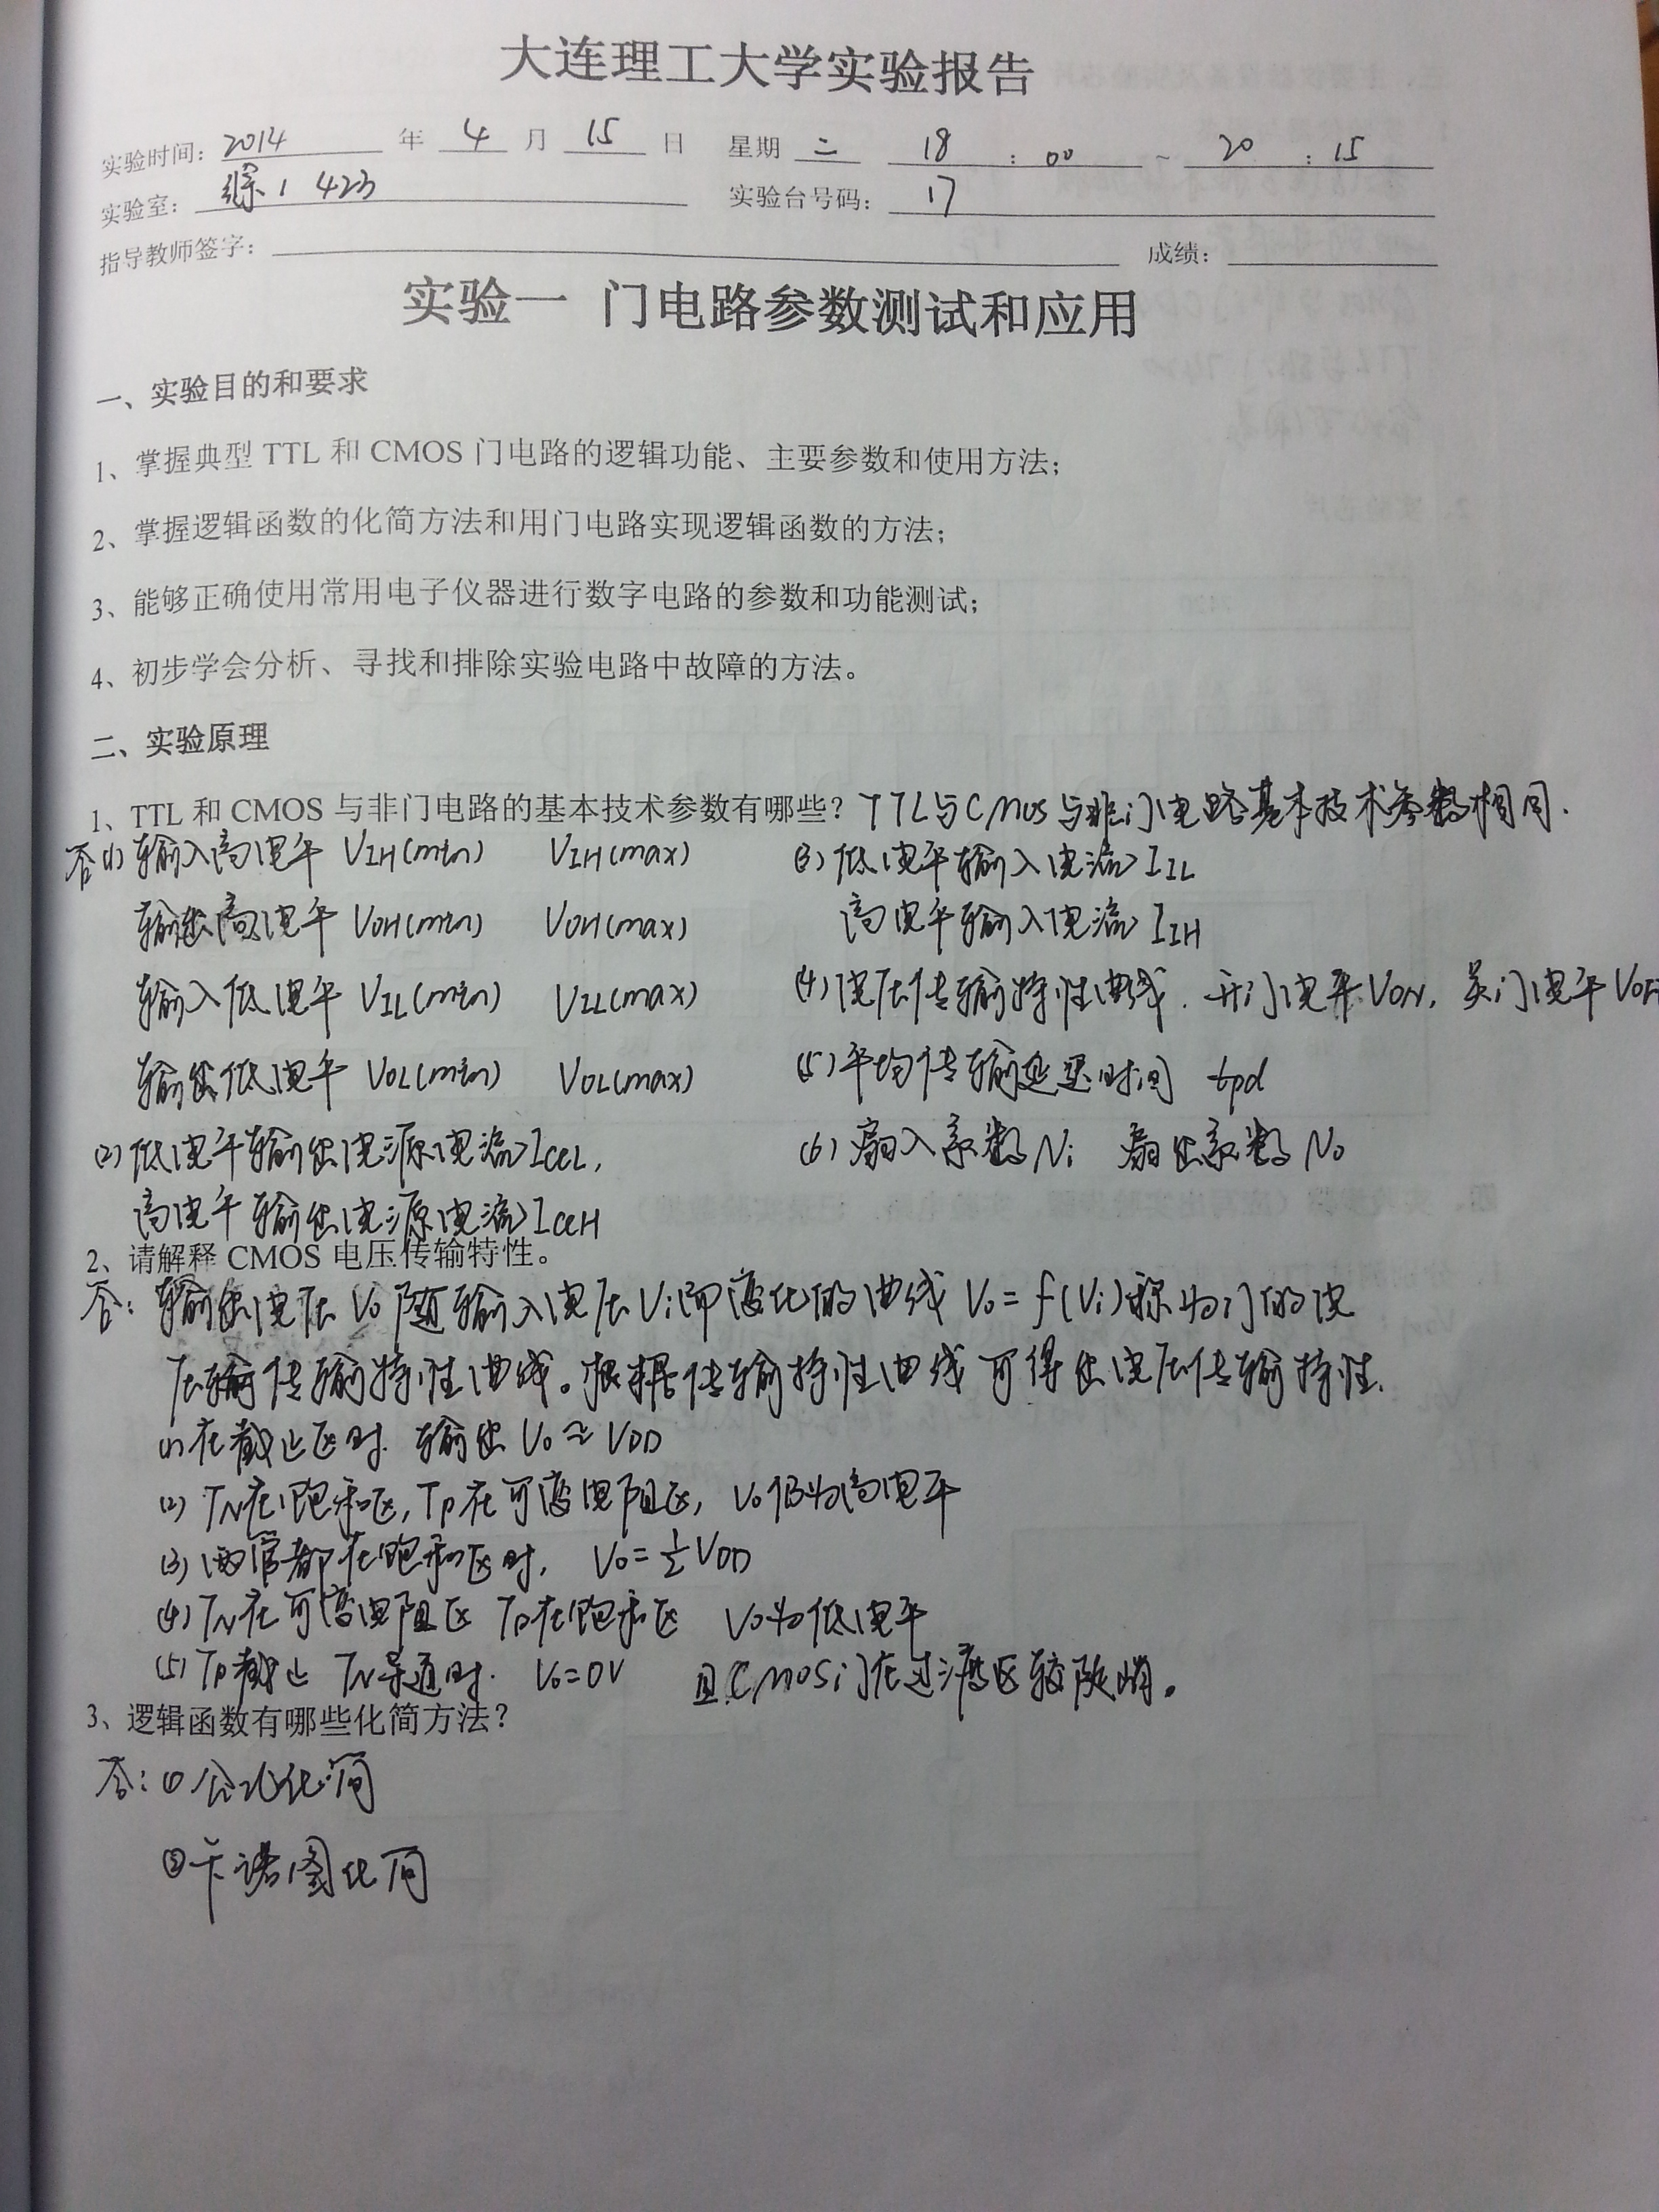 大连理工大学实验报告
实验时间: 2014 年 4 月 15 日 星期 二 18 : 00 ~ 20 : 15
实验室: 综1 423 实验台号码: 17
指导教师签字: 成绩:
实验一 门电路参数测试和应用
一、实验目的和要求
1、掌握典型 TTL 和 CMOS 门电路的逻辑功能、主要参数和使用方法;
2、掌握逻辑函数的化简方法和用门电路实现逻辑函数的方法;
3、能够正确使用常用电子仪器进行数字电路的参数和功能测试;
4、初步学会分析、寻找和排除实验电路中故障的方法。
二、实验原理
1、TTL 和 CMOS 与非门电路的基本技术参数有哪些? TTL与CMOS与非门电路基本技术参数相同.
答(1) 输入高电平 VIH(min) VIH(max)
输出高电平 VOH(min) VOH(max)
输入低电平 VIL(min) VIL(max)
输出低电平 VOL(min) VOL(max)
(2) 低电平输出电源电流 ICCL,
高电平输出电源电流 ICCH
(3) 低电平输入电流 IIL
高电平输入电流 IIH
(4) 电压传输特性曲线. 开门电平VON, 关门电平VOF
(5) 平均传输延迟时间 tpd
(6) 扇入系数Ni 扇出系数No
2、请解释 CMOS 电压传输特性。
答: 输出电压 Vo 随输入电压Vi而变化的曲线 Vo=f(Vi)称为门的电
压传输特性曲线。根据传输特性曲线可得出电压传输特性.
(1)在截止区时. 输出 Vo≈VDD
(2) TN在饱和区, TP在可变电阻区, Vo仍为高电平
(3) 两管都在饱和区时, Vo=½VDD
(4) TN在可变电阻区 TP在饱和区 Vo为低电平
(5) TP截止 TN导通时. Vo=0V 且CMOS门在过渡区较陡峭。
3、逻辑函数有哪些化简方法?
答: ① 公式化简
② 卡诺图化简